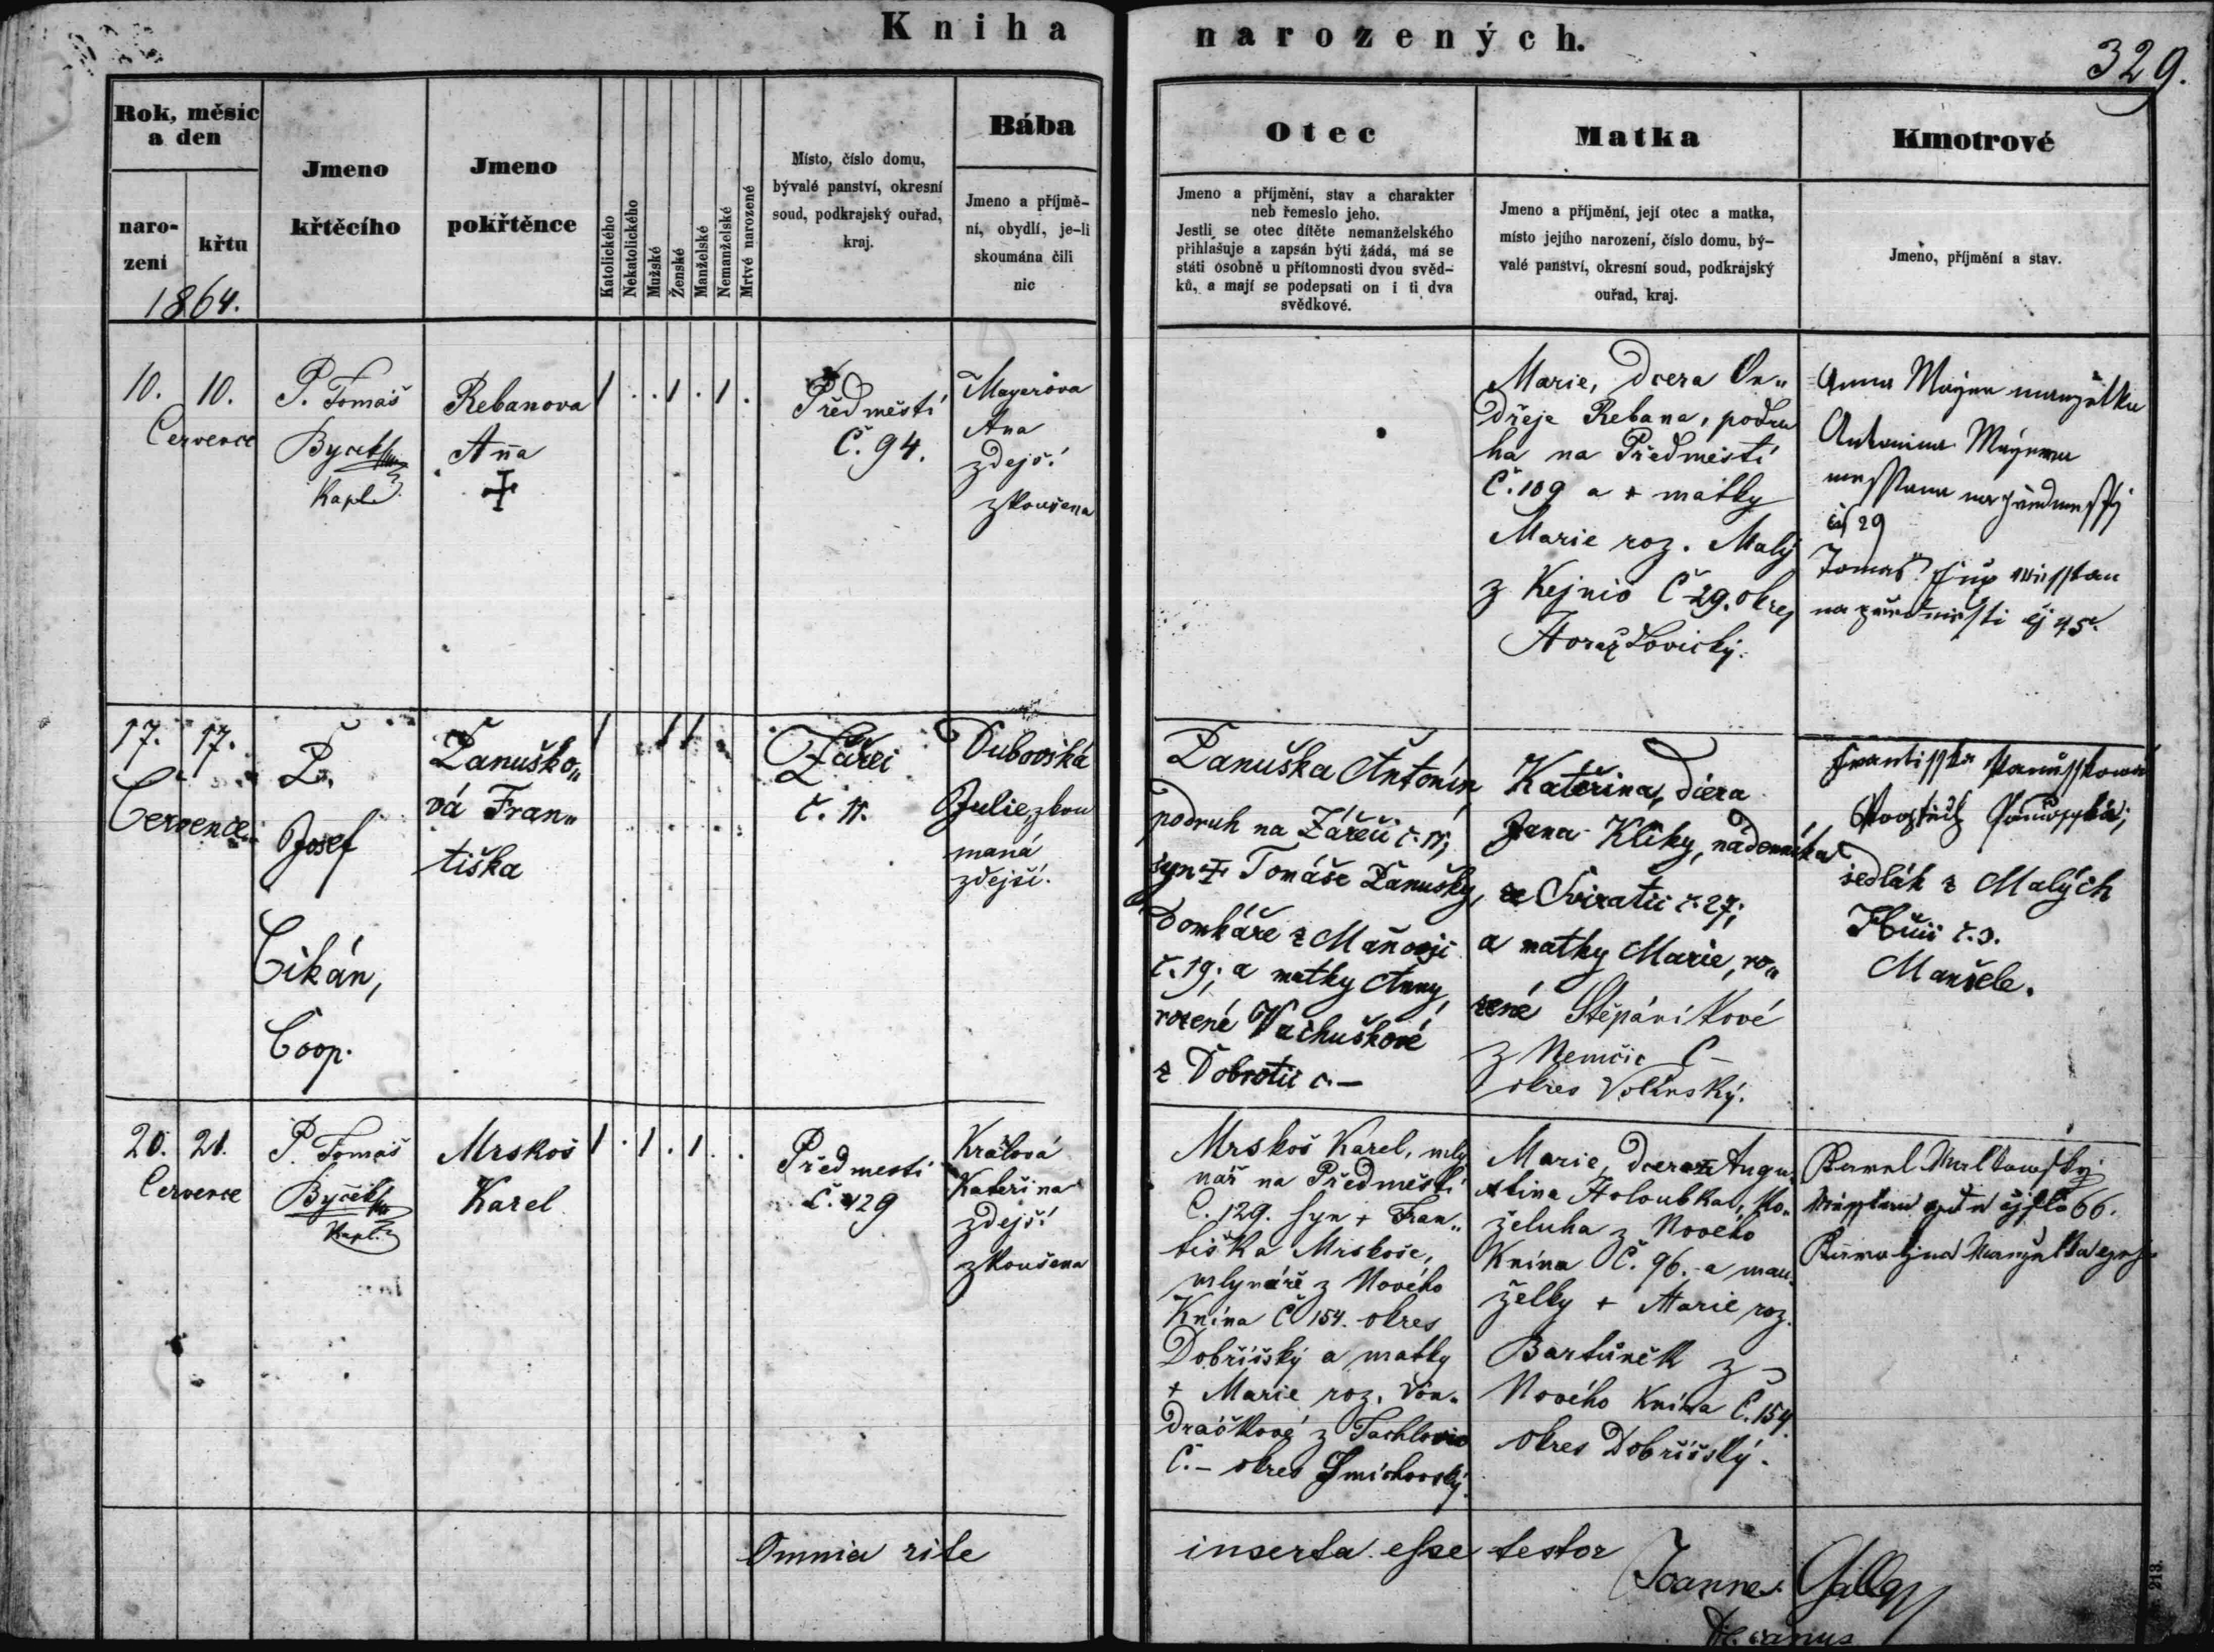 Kniha narozených.
329.
Rok, měsíc
a den
naro-
zení
křtu
1864.
Jmeno
křtěcího
Jmeno
pokřtěnce
Katolického
Nekatolického
Mužské
Ženské
Manželské
Nemanželské
Mrtvé narozené
Místo, číslo domu,
bývalé panství, okresní
soud, podkrajský ouřad,
kraj.
Bába
Jmeno a příjmě-
ní, obydlí, je-li
skoumána čili
nic
Otec
Jmeno a příjmění, stav a charakter
neb řemeslo jeho.
Jestli se otec dítěte nemanželského
přihlašuje a zapsán býti žádá, má se
státi osobně u přítomnosti dvou svěd-
ků, a mají se podepsati on i ti dva
svědkové.
Matka
Jmeno a příjmění, její otec a matka,
místo jejího narození, číslo domu, bý-
valé panství, okresní soud, podkrajský
ouřad, kraj.
Kmotrové
Jmeno, příjmění a stav.
10. 10.
Července
P. Tomáš
Byček
Kapl.
Rebanova
Anna
Předměstí
Č. 94.
Mayerova
Ana
zdejší
zkoušena
Marie, dcera On„
dřeje Rebana, podru
ha na Předměstí
Č. 109 a + matky
Marie roz. Malý
z Kejnic Č 29. okres
Horažďovický.
Anna
manželka
Antonina
29
Tomáš
17. 17.
Července
P.
Josef
Cikán,
Coop.
Panuško„
vá Fran„
tiška
Zářeí
č. 11.
Dubovská
Julie, zkou
maná
zdejší.
Panuška Antonín
podruh na Zářečí č. 11;
syn + Tomáše Panušky,
Domkáře z Maňovic
č. 19; a matky Anny,
rozené Vachuškové
z Dobrotic č. —
Kateřina, dcera
Jana Kliky, nádenníka
ze Sviratic č. 27;
a matky Marie, ro„
zené Štěpánikové
z Nemčic Č —
okres Volinský.
sedlák z Malých
č. 3.
Manžele.
20. 21.
Července
P. Tomáš
Byček
Kapl.
Mrskoš
Karel
Předmestí
Č. 129
Králová
Kateřina
zdejší
zkoušena
Mrskoš Karel, mly
nář na Předměstí
Č. 129. syn + Fran„
tiška Mrskoše,
mlynáře z Nového
Knína Č 154. okres
Dobříšský a matky
+ Marie roz. Von„
dráčkové z Tachlovic
Č. — okres Smíchovský.
Marie, dcera + Augu„
stina Holoubka, ko„
želuha z Nového
Knína Č. 96. a man„
želky + Marie roz.
Bartůněk z
Nového Knína Č. 154
okres Dobříšský.
66.
Omnia rite inserta esse testor
Joannes Galley
Decanus
213.